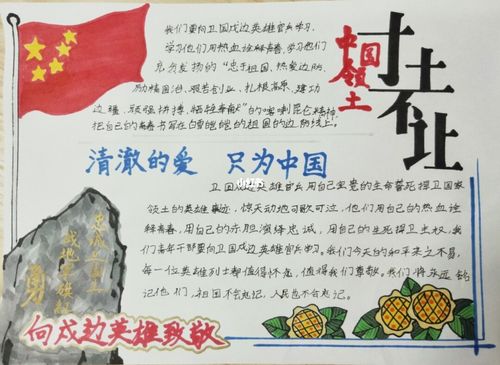 我们要向卫国戍边英雄官兵学习，
学习他们用热血诠释青春，学习他们
充分发扬的“忠于祖国，热爱边防，
励精图治，艰苦创业，扎根高原，建功
边疆，顽强拼搏，牺牲奉献”的喀喇昆仑精神，
把自己的青春书写在白雪皑皑的祖国的边防线上。
中国
领土
寸土不让
清澈的爱 只为中国
卫国戍边英雄官兵用自己宝贵的生命誓死捍卫国家
领土的英雄事迹，惊天动地可歌可泣，他们用自己的热血诠
释青春，用自己的赤胆演绎忠诚，用自己的生死捍卫主权，我
们青年干部要向卫国戍边英雄官兵学习。我们今天的和平来之不易，
每一位英雄烈士都值得怀念，值得我们尊敬。我们将永远铭
记他们，祖国不会忘记，人民也不会忘记。
勇
向戍边英雄致敬